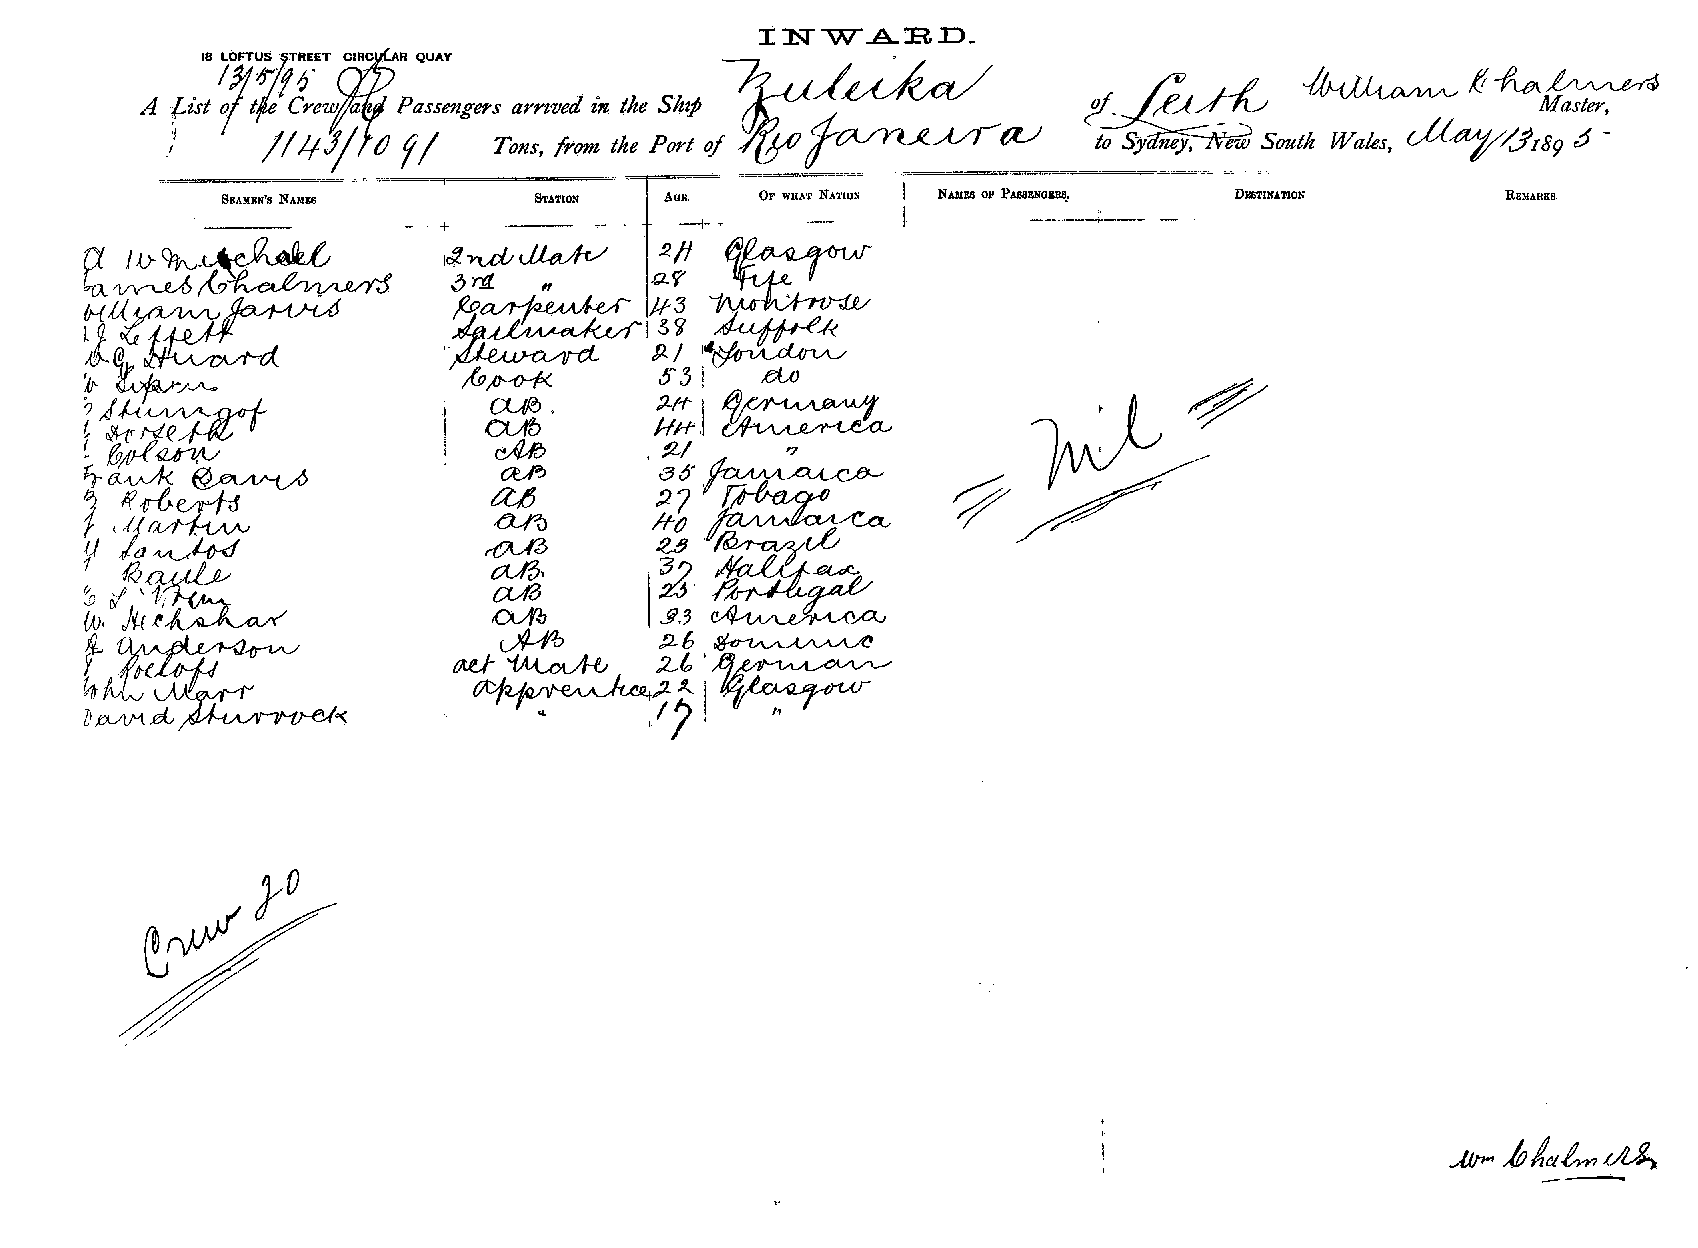 INWARD.
18 LOFTUS STREET CIRCULAR QUAY
13/5/95
A List of the Crew and Passengers arrived in the Ship Zuleika of Leith William Chalmers Master,
1143/1091 Tons, from the Port of Rio Janeira to Sydney, New South Wales, May 13 1895
SEAMEN'S NAMES STATION AGE. OF WHAT NATION NAMES OF PASSENGERS. DESTINATION REMARKS
A W Mitchell 2nd Mate 24 Glasgow
James Chalmers 3rd " 28 Fife
William Jarvis Carpenter 43 Montrose
Leffett Sailmaker 38 Suffolk
Huard Steward 21 London
Cook 53 do
Stumgof AB. 24 Germany
Dorseth AB 44 America
Colson AB 21 "
Frank Davis AB 35 Jamaica
Roberts AB 27 Tobago
Martin AB 40 Jamaica
Santos AB 23 Brazil
Baule AB. 37 Halifax
AB 25 Portugal
W. Hickshar AB 33 America
Anderson AB 26 Dominic
Roelofs act Mate 26 German
John Marr apprentice 22 Glasgow
David Sturrock " 17 "
= Nil =
Crew 20
Wm Chalmers